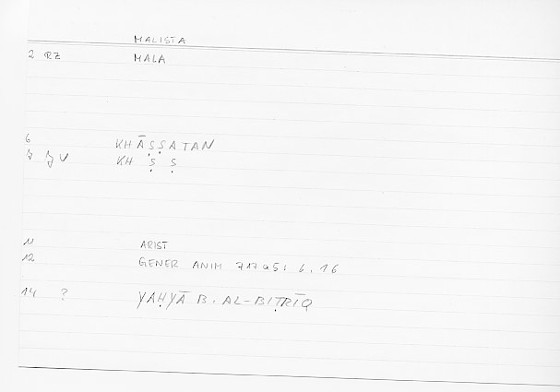 MALISTA
2 RZ MALA
6 KHĀṢṢATAN
7 KH Ṣ Ṣ
11 ARIST
12 GENER ANIM
14 ? YAḤYĀ B. AL-BIṬRĪQ